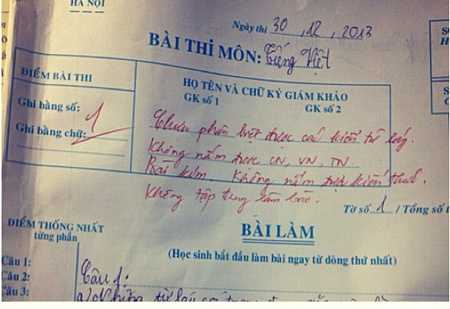 HÀ NỘI
Ngày thi 30, 12, 2013
BÀI THI MÔN: Tiếng Việt
ĐIỂM BÀI THI
HỌ TÊN VÀ CHỮ KÝ GIÁM KHẢO
GK số 1 GK số 2
Ghi bằng số: 1
Ghi bằng chữ:
Chưa phân biệt được các kiểu từ láy.
Không nắm được CN, VN, TN
Bài kém. Không nắm được kiến thức.
Không tập trung làm bài.
Tờ số 1 / Tổng số t
ĐIỂM THỐNG NHẤT
từng phần
BÀI LÀM
(Học sinh bắt đầu làm bài ngay từ dòng thứ nhất)
Câu 1:
Câu 2:
Câu 3:
Câu 1:
a) Những từ láy